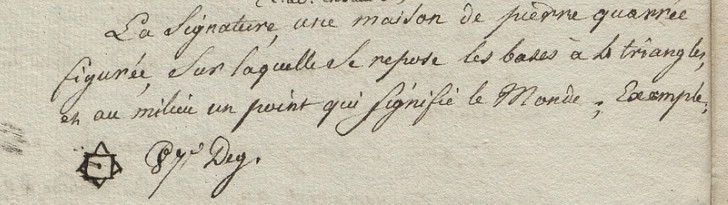 La Signature, une maison de pierre quarrée
figurée, Sur laquelle Se repose les bases à 4 triangles,
et au milieu un point qui Signifie le Monde, Exemple,
87e Deg.